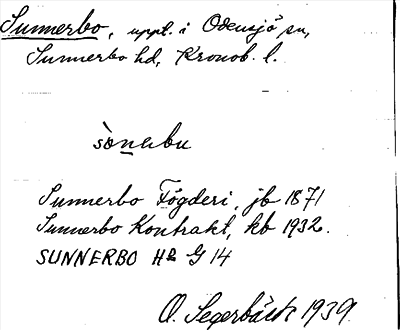 Sunnerbo, uppt. i Odensjö sn,
Sunnerbo hd, Kronob. l.
sònabu
Sunnerbo Fögderi, jb 1871
Sunnerbo Kontrakt, kb 1932.
SUNNERBO HD G 14
O. Segerbäck 1939.